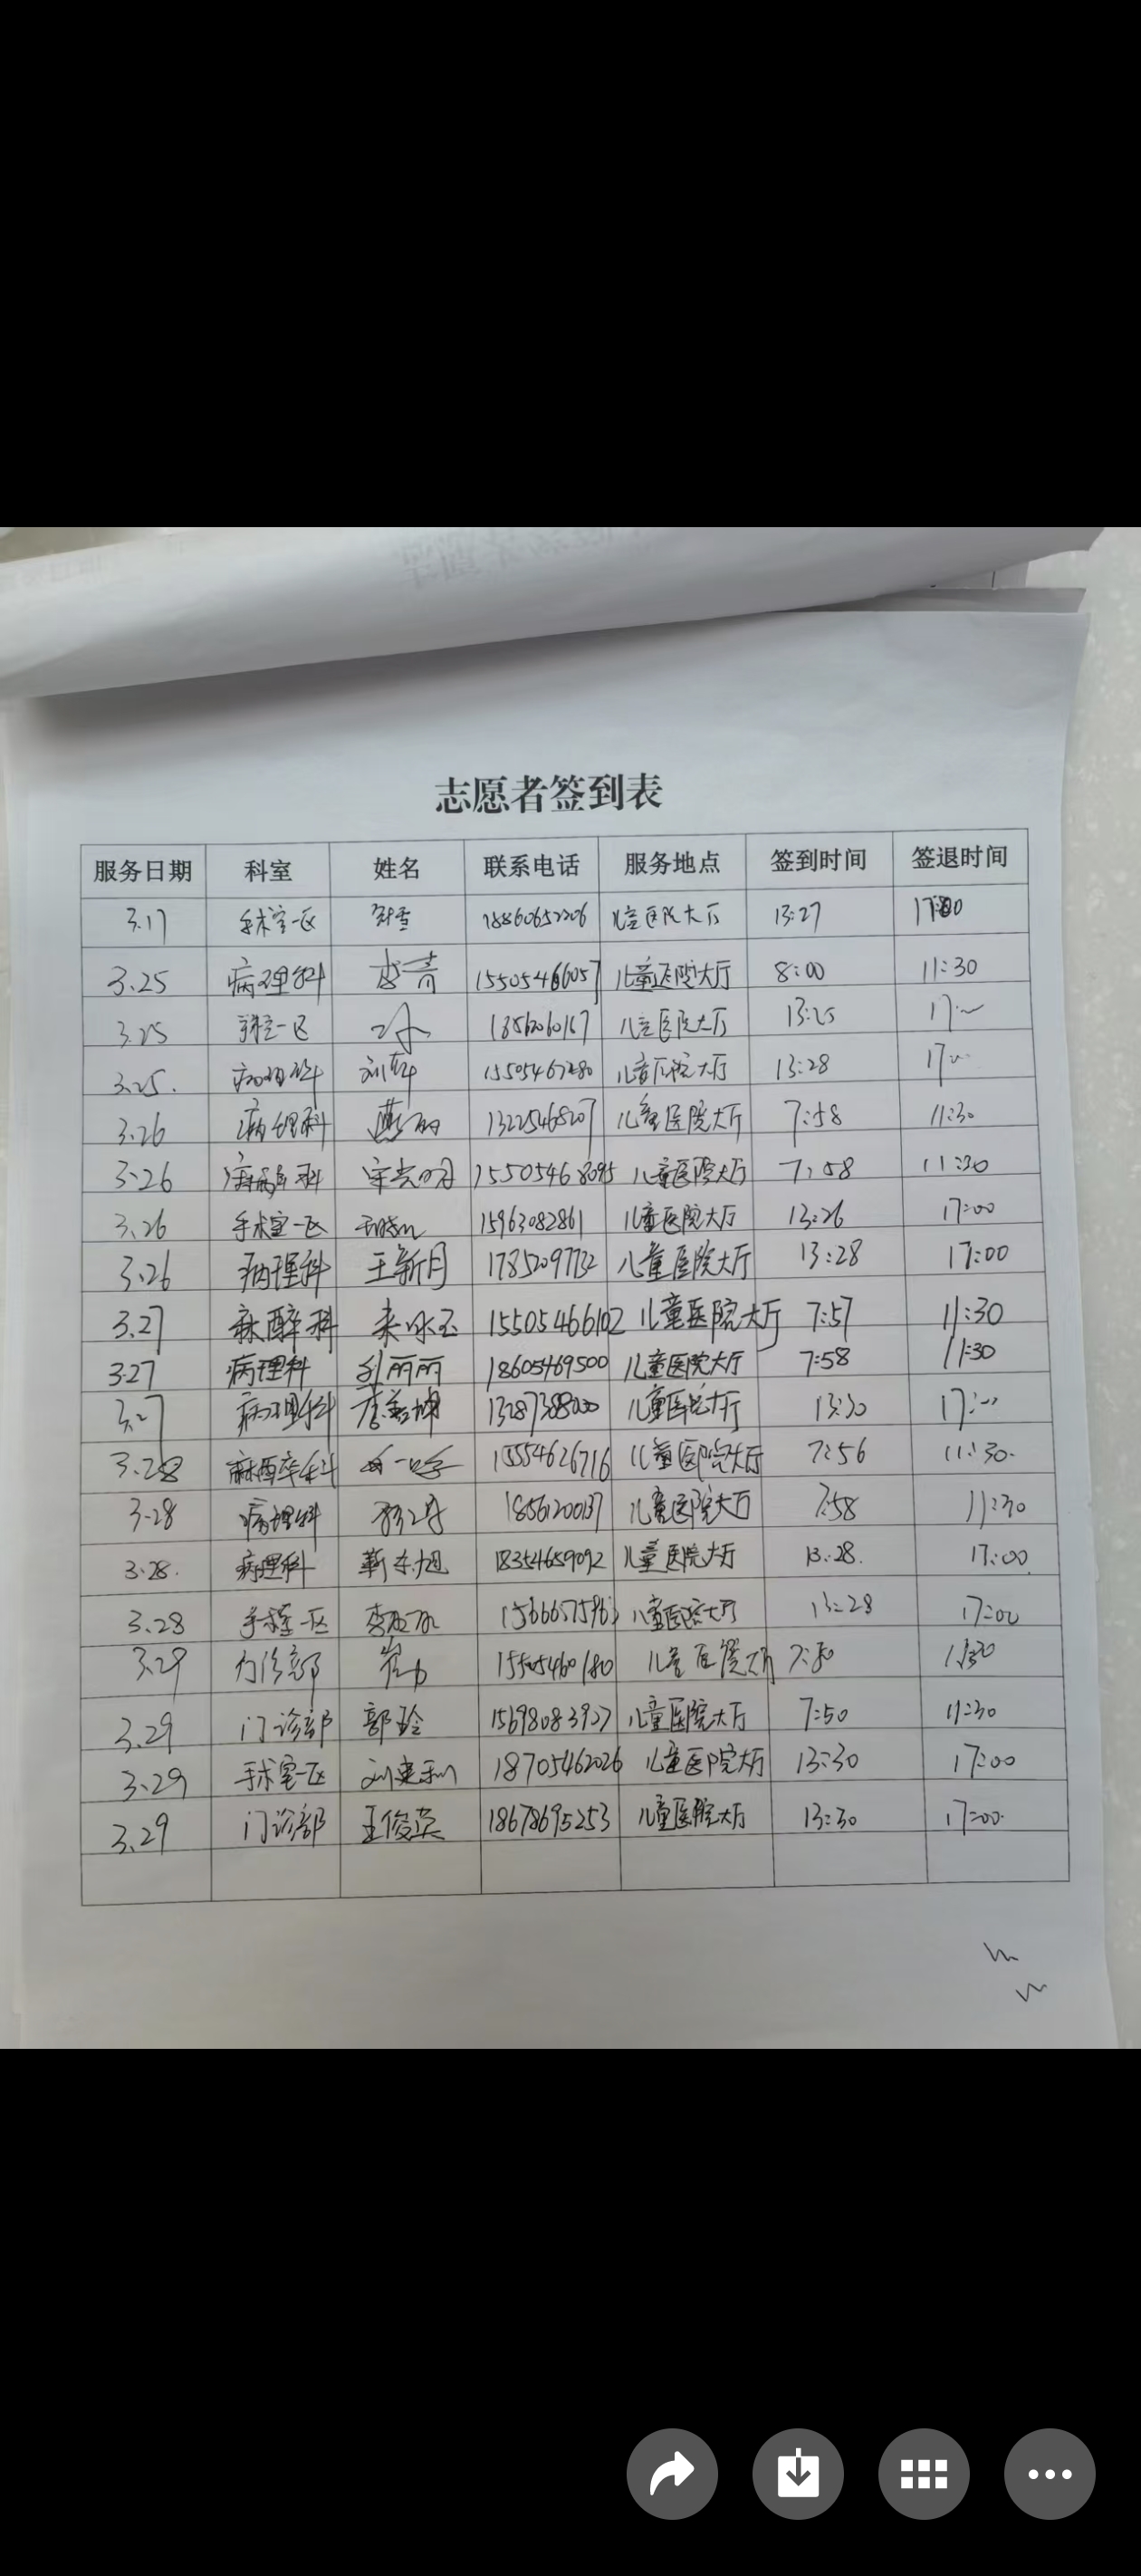 志愿者签到表
服务日期 科室 姓名 联系电话 服务地点 签到时间 签退时间
3.17 手术室一区 18860652206 儿童医院大厅 13:27 17:00
3.25 病理科 15505466057 儿童医院大厅 8:00 11:30
3.25 手术室一区 儿童医院大厅 13:25 17:
3.25. 病理科 15505467280 儿童医院大厅 13:28 17
3.26 病理科 13225468207 儿童医院大厅 7:58 11:30
3.26 科 15505468095 儿童医院大厅 7:58 11:30
3.26 手术室一区 15963082861 儿童医院大厅 13:26 17:00
3.26 病理科 王新月 17852097732 儿童医院大厅 13:28 17:00
3.27 麻醉科 15505466102 儿童医院大厅 7:57 11:30
3.27 病理科 刘丽丽 18605469500 儿童医院大厅 7:58 11:30
3.27 病理科 儿童医院大厅 13:30 17:00
3.28 麻醉科 15554626716 儿童医院大厅 7:56 11:30.
3.28 病理科 18561200137 儿童医院大厅 7:58 11:30
3.28. 病理科 18354659092 儿童医院大厅 13:28. 17:00
3.28 手术室一区 儿童医院大厅 13:28 17:00
3.29 门诊部 15505460180 儿童医院大厅 7:50 11:30
3.29 门诊部 郭玲 15698083927 儿童医院大厅 7:50 11:30
3.29 手术室一区 18705462026 儿童医院大厅 13:30 17:00
3.29 门诊部 王俊英 18678695253 儿童医院大厅 13:30 17:00